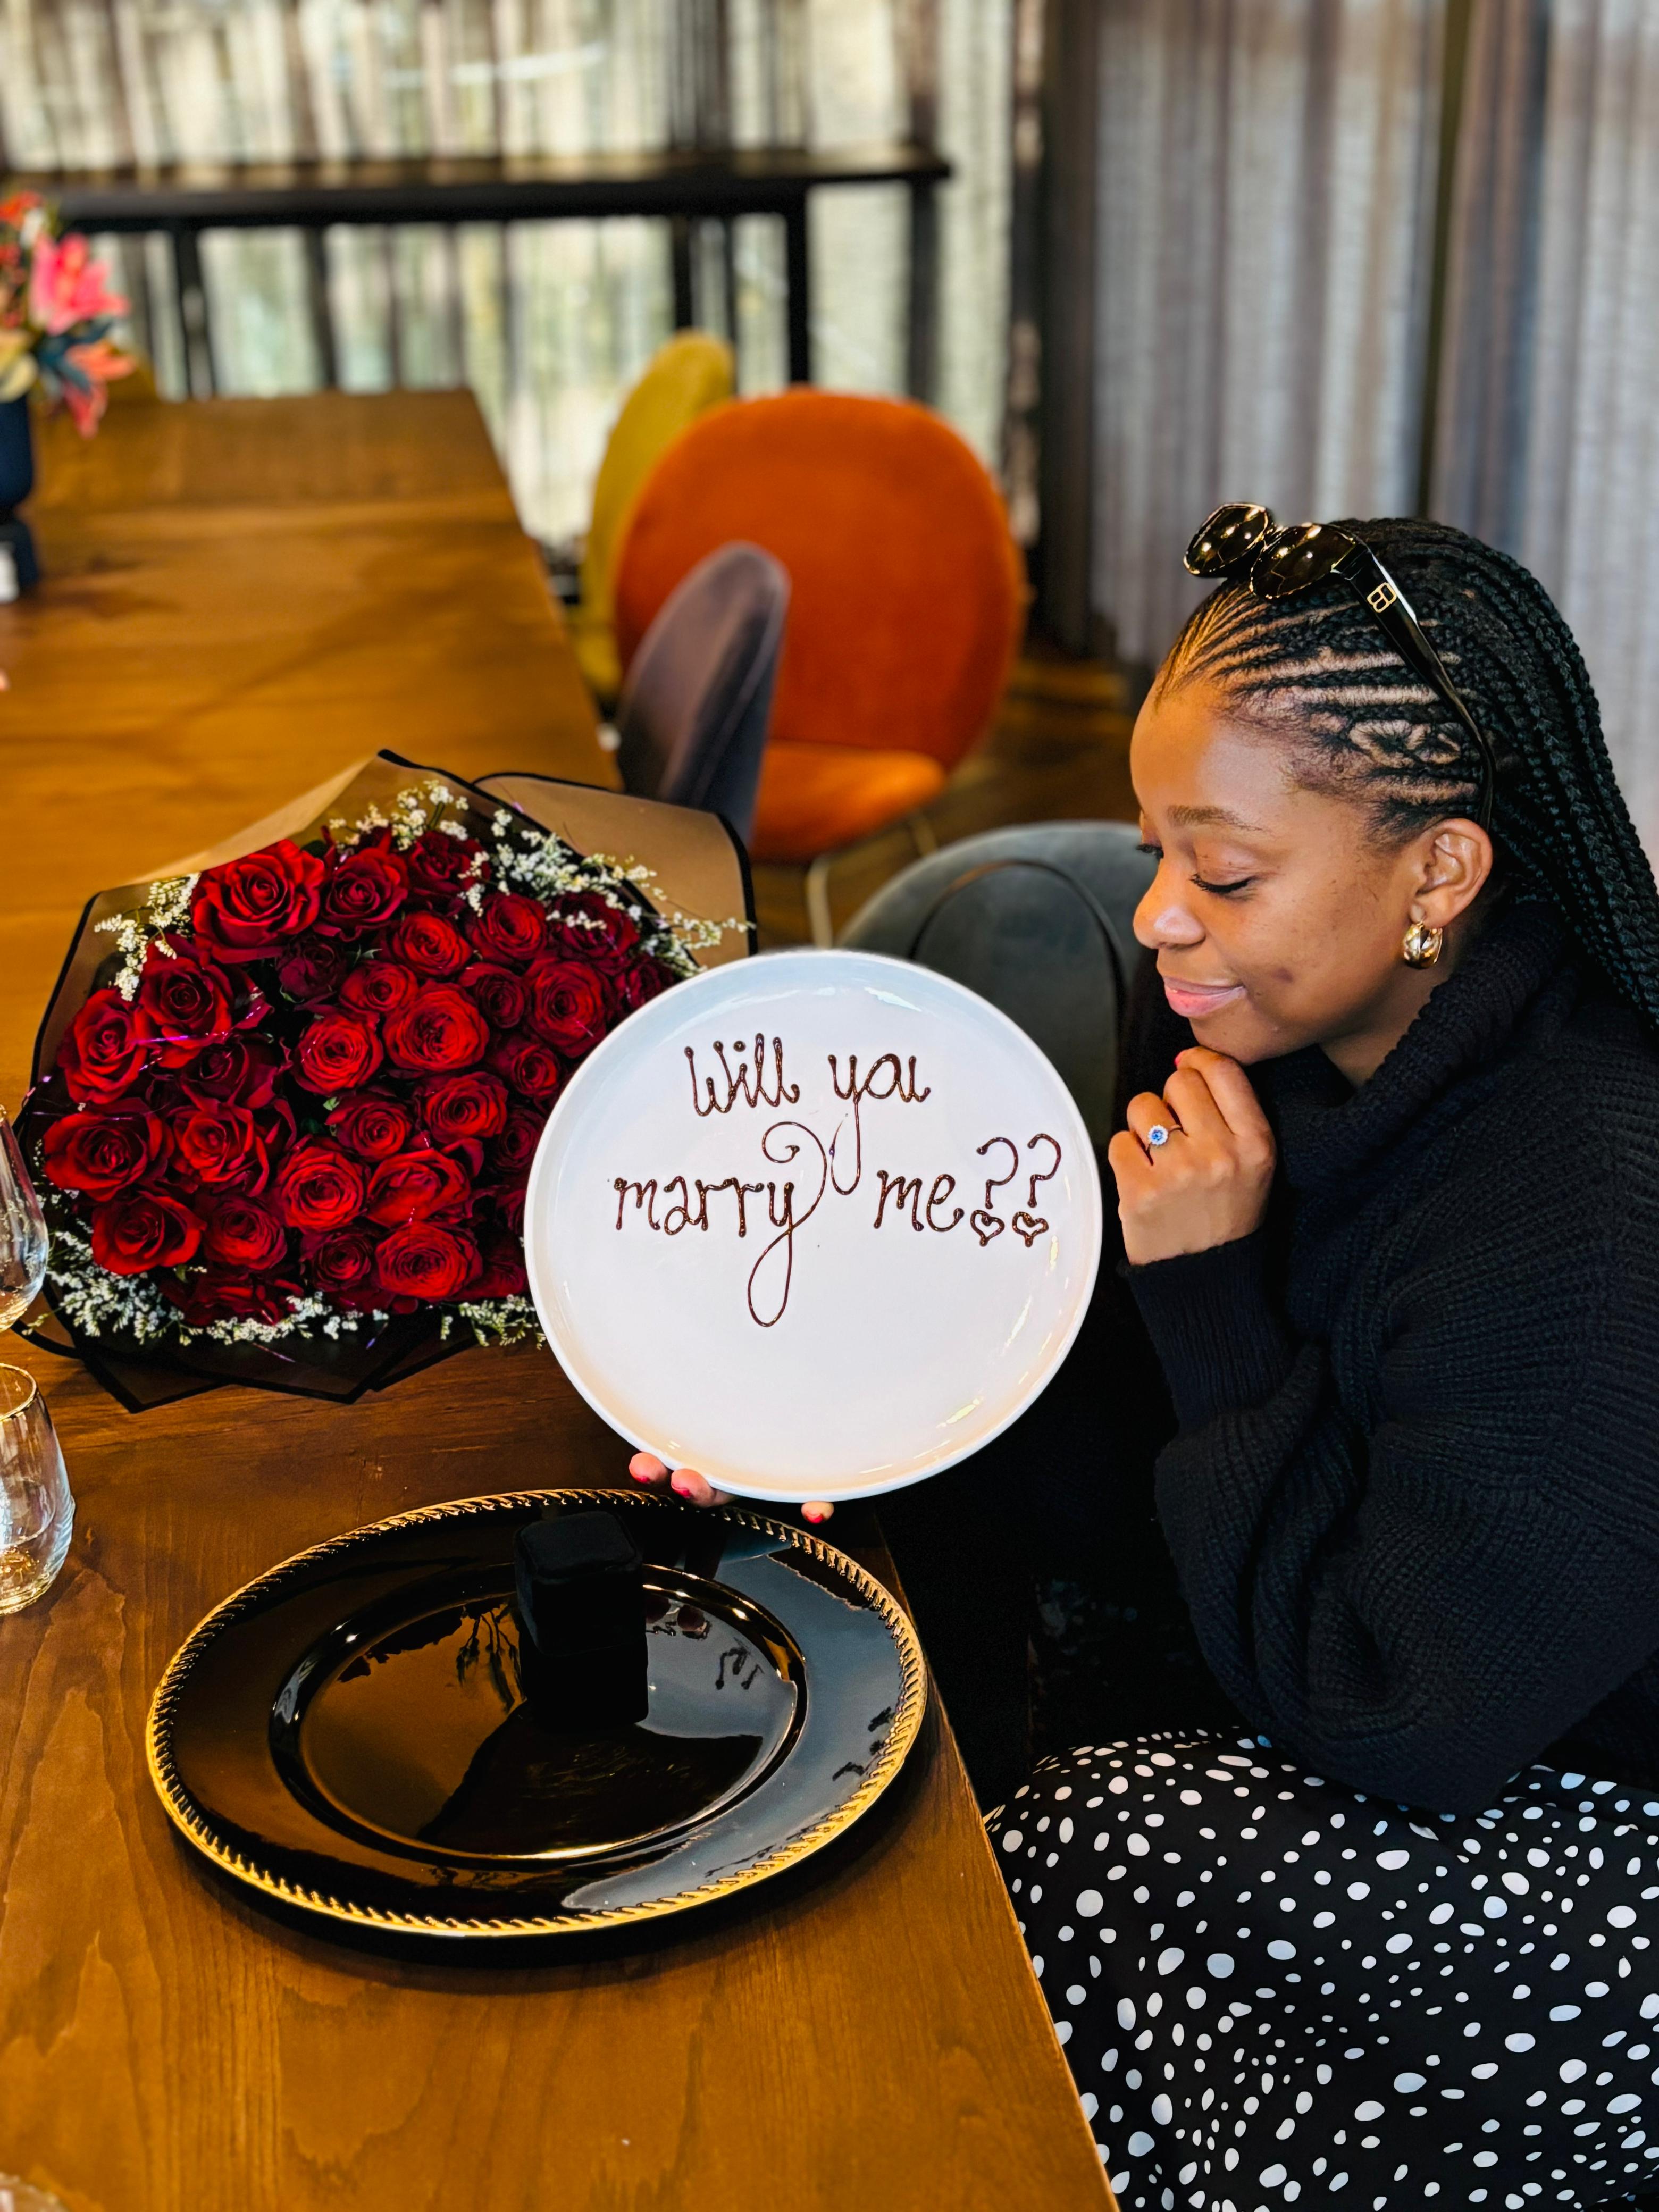 Will you
marry me??